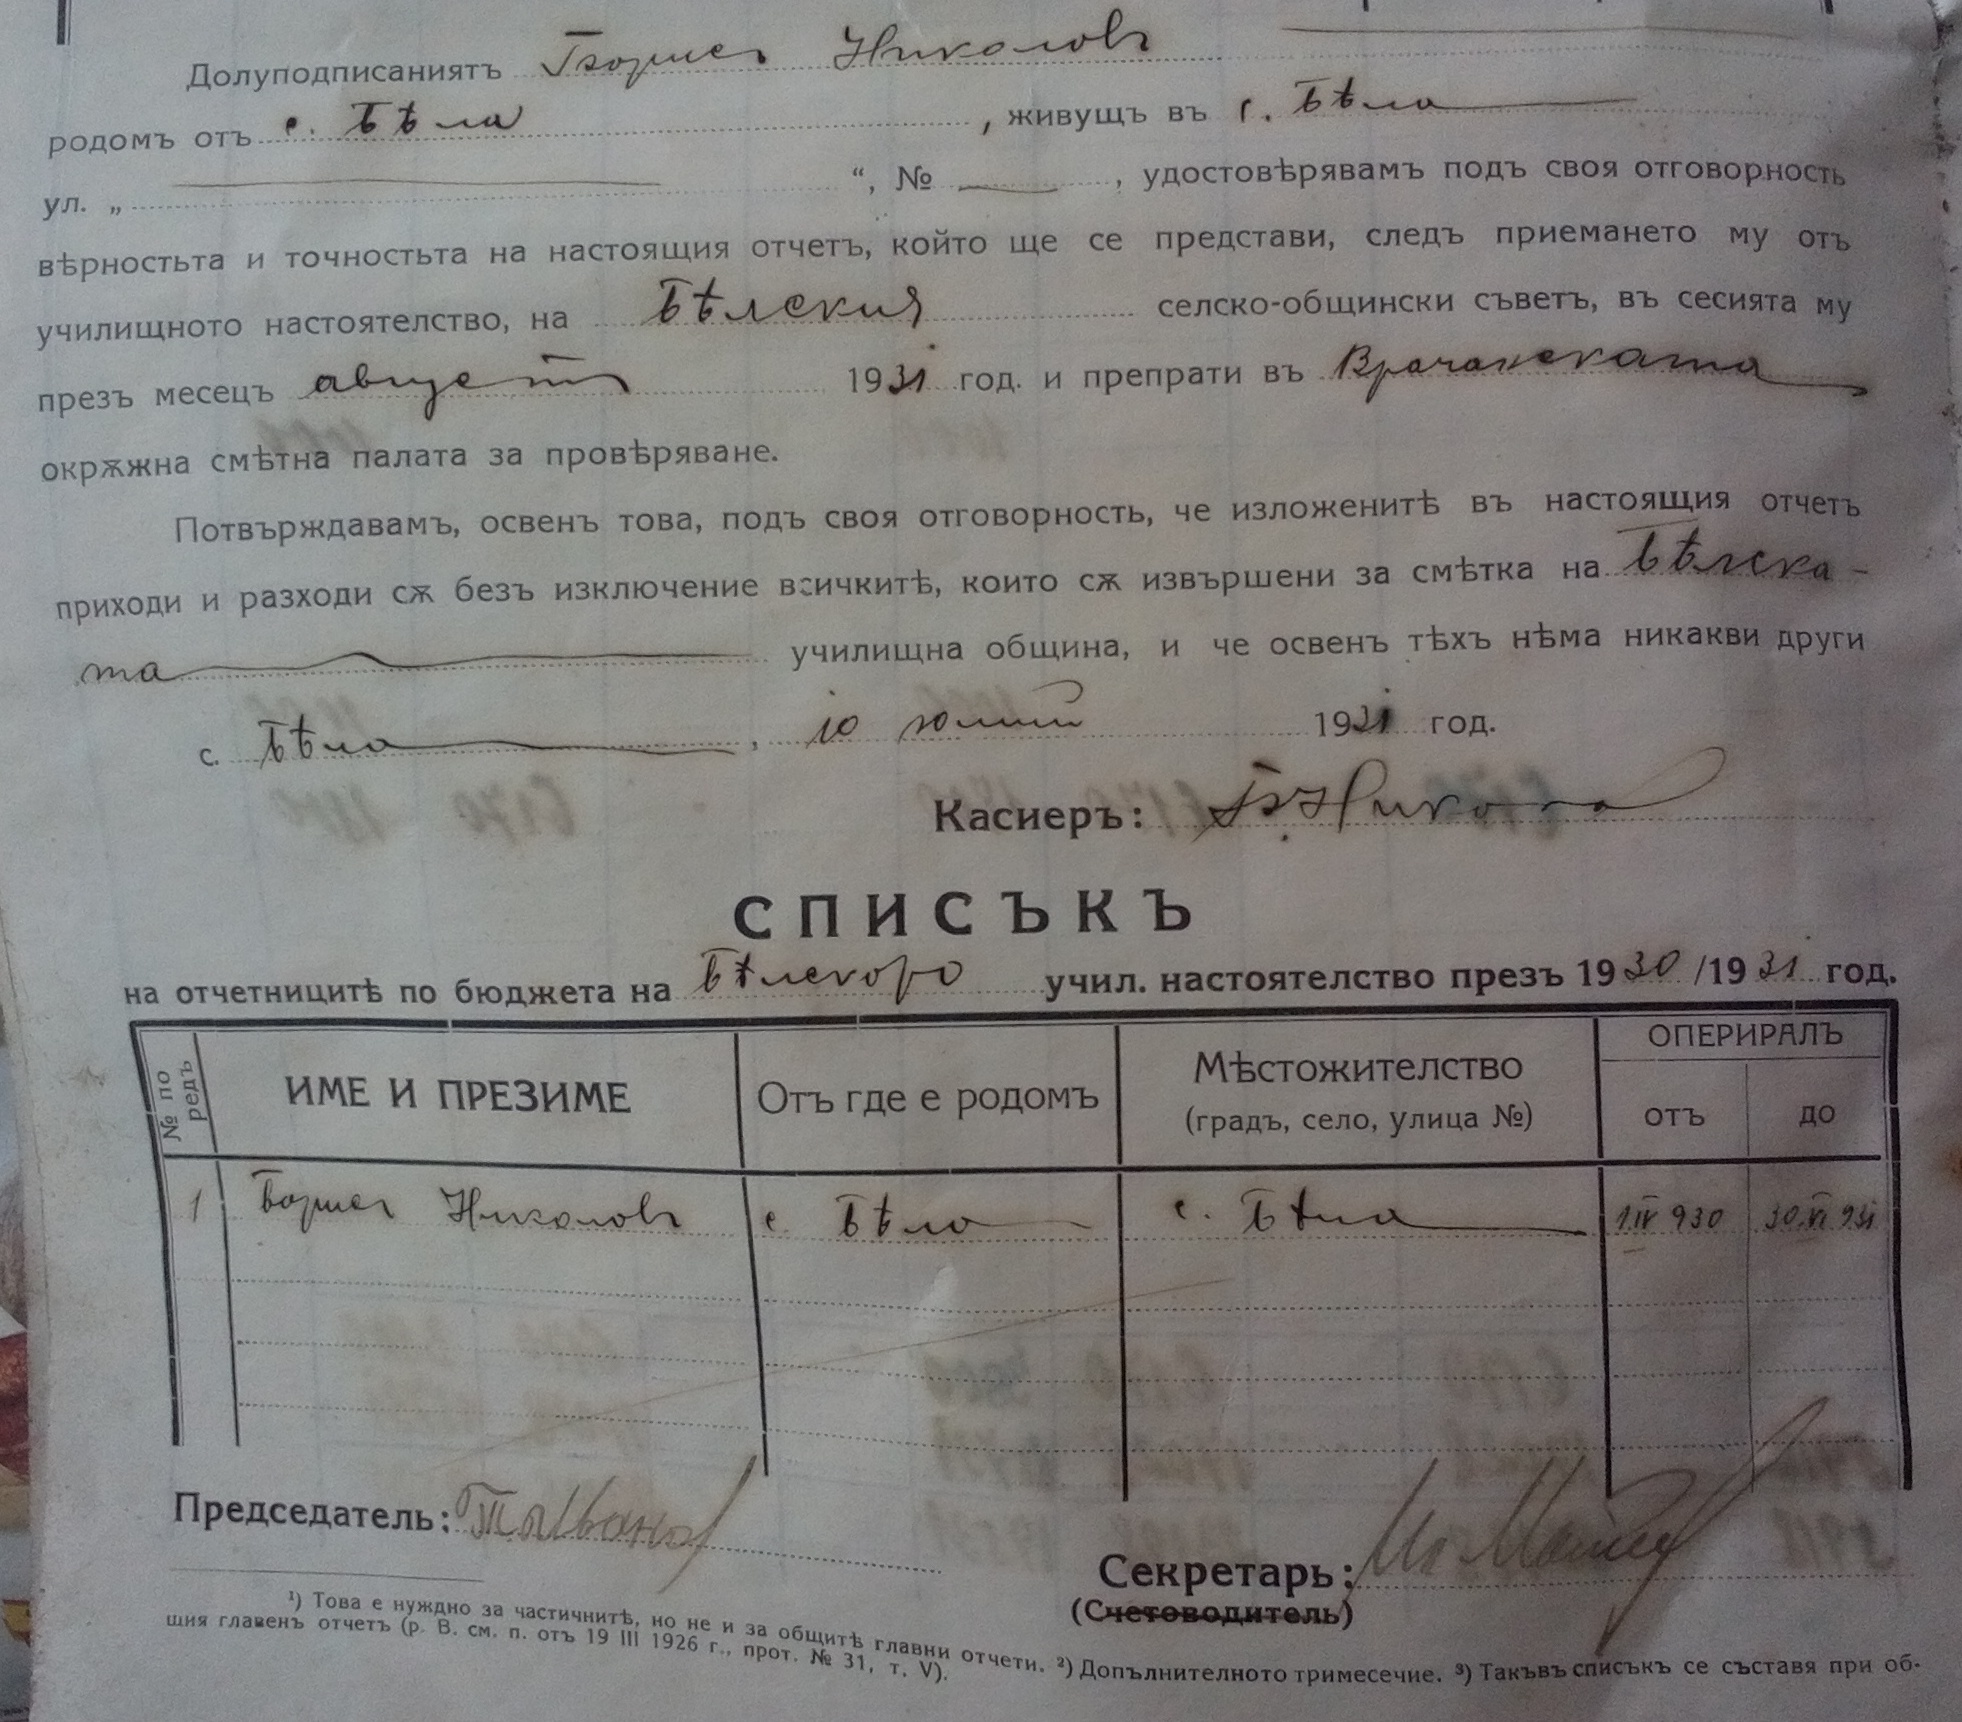 Долуподписаниятъ Борисъ Николовъ
родомъ отъ с. Бѣла, живущъ въ с. Бѣла
ул. „ “, № , удостовѣрявамъ подъ своя отговорность
вѣрностьта и точностьта на настоящия отчетъ, който ще се представи, следъ приемането му отъ
училищното настоятелство, на Бѣлския селско-общински съветъ, въ сесията му
презъ месецъ августъ 1931 год. и препрати въ Врачанската
окрѫжна смѣтна палата за провѣряване.
Потвърждавамъ, освенъ това, подъ своя отговорность, че изложенитѣ въ настоящия отчетъ
приходи и разходи сѫ безъ изключение всичкитѣ, които сѫ извършени за смѣтка на Бѣлска-
та училищна община, и че освенъ тѣхъ нѣма никакви други
с. Бѣла, 10 юлий 1931 год.
Касиеръ: Б. Николовъ
СПИСЪКЪ
на отчетницитѣ по бюджета на Бѣлското учил. настоятелство презъ 1930/1931 год.
№ по редъ ИМЕ И ПРЕЗИМЕ Отъ где е родомъ Мѣстожителство (градъ, село, улица №) ОПЕРИРАЛЪ отъ до
1 Борисъ Николовъ с. Бѣла с. Бѣла 1.IV 930 30.VI 931
Председатель:
Секретарь:
(Счетоводитель)
¹) Това е нуждно за частичнитѣ, но не и за общитѣ главни отчети. ²) Допълнителното тримесечие. ³) Такъвъ списъкъ се съставя при об-
щия главенъ отчетъ (р. В. см. п. отъ 19 III 1926 г., прот. № 31, т. V).